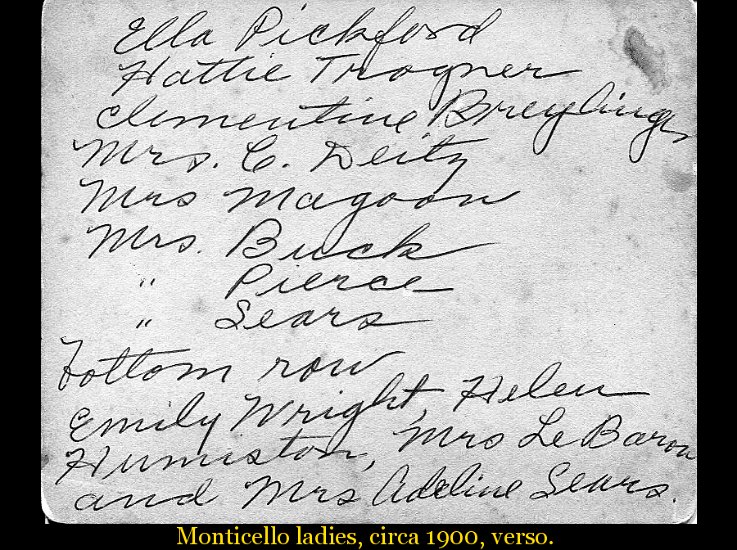 Ella Pickford
Hattie Trogner
Clementine Breylinger
Mrs. C. Deitz
Mrs Magoon
Mrs. Buck
" Pierce
" Sears
bottom row
Emily Wright, Helen
Humiston, Mrs LeBaron
and Mrs Adeline Sears.
Monticello ladies, circa 1900, verso.